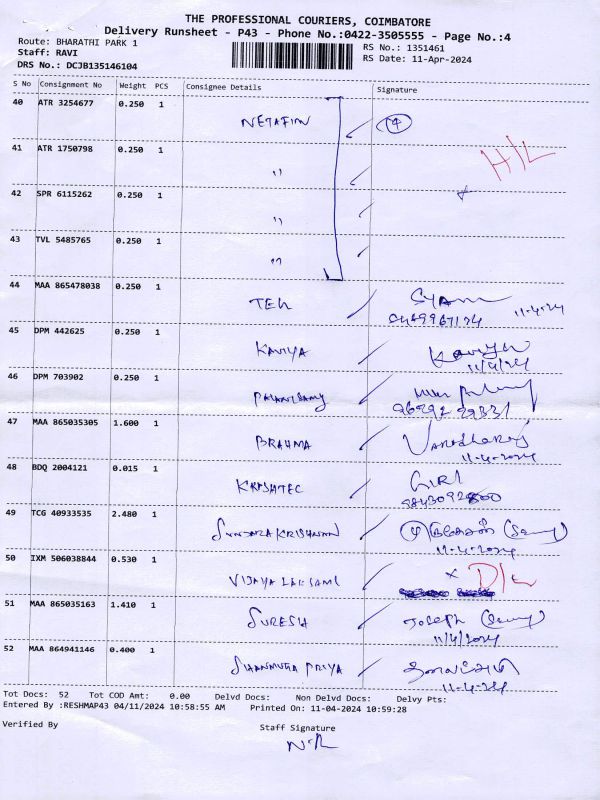 THE PROFESSIONAL COURIERS, COIMBATORE
Delivery Runsheet - P43 - Phone No.:0422-3505555 - Page No.:4
Route: BHARATHI PARK 1
RS No.: 1351461
Staff: RAVI
RS Date: 11-Apr-2024
DRS No.: DCJB135146104
S No Consignment No Weight PCS Consignee Details Signature
40 ATR 3254677 0.250 1 NETAFIM 4
H/L
41 ATR 1750798 0.250 1 "
42 SPR 6115262 0.250 1 "
43 TVL 5485765 0.250 1 "
44 MAA 865478038 0.250 1 TEK SYAM
11-4-24
45 DPM 442625 0.250 1 KAVIYA Kaviya
11/4/24
46 DPM 703902 0.250 1 PALANISAMY
47 MAA 865035305 1.600 1 BRAHMA Varadharaj
11-4-2024
48 BDQ 2004121 0.015 1 KRISHTEC GIRI
49 TCG 40933535 2.480 1 SUNDARA KRISHNAN
11-4-2024
50 IXM 506038844 0.530 1 VIJAYA LAKSAMI x D/L
51 MAA 865035163 1.410 1 SURESH Joseph
11/4/2024
52 MAA 864941146 0.400 1 SHANMUGA PRIYA
11-4-24
Tot Docs: 52 Tot COD Amt: 0.00 Delvd Docs: Non Delvd Docs: Delvy Pts:
Entered By :RESHMAP43 04/11/2024 10:58:55 AM Printed On: 11-04-2024 10:59:28
Verified By Staff Signature